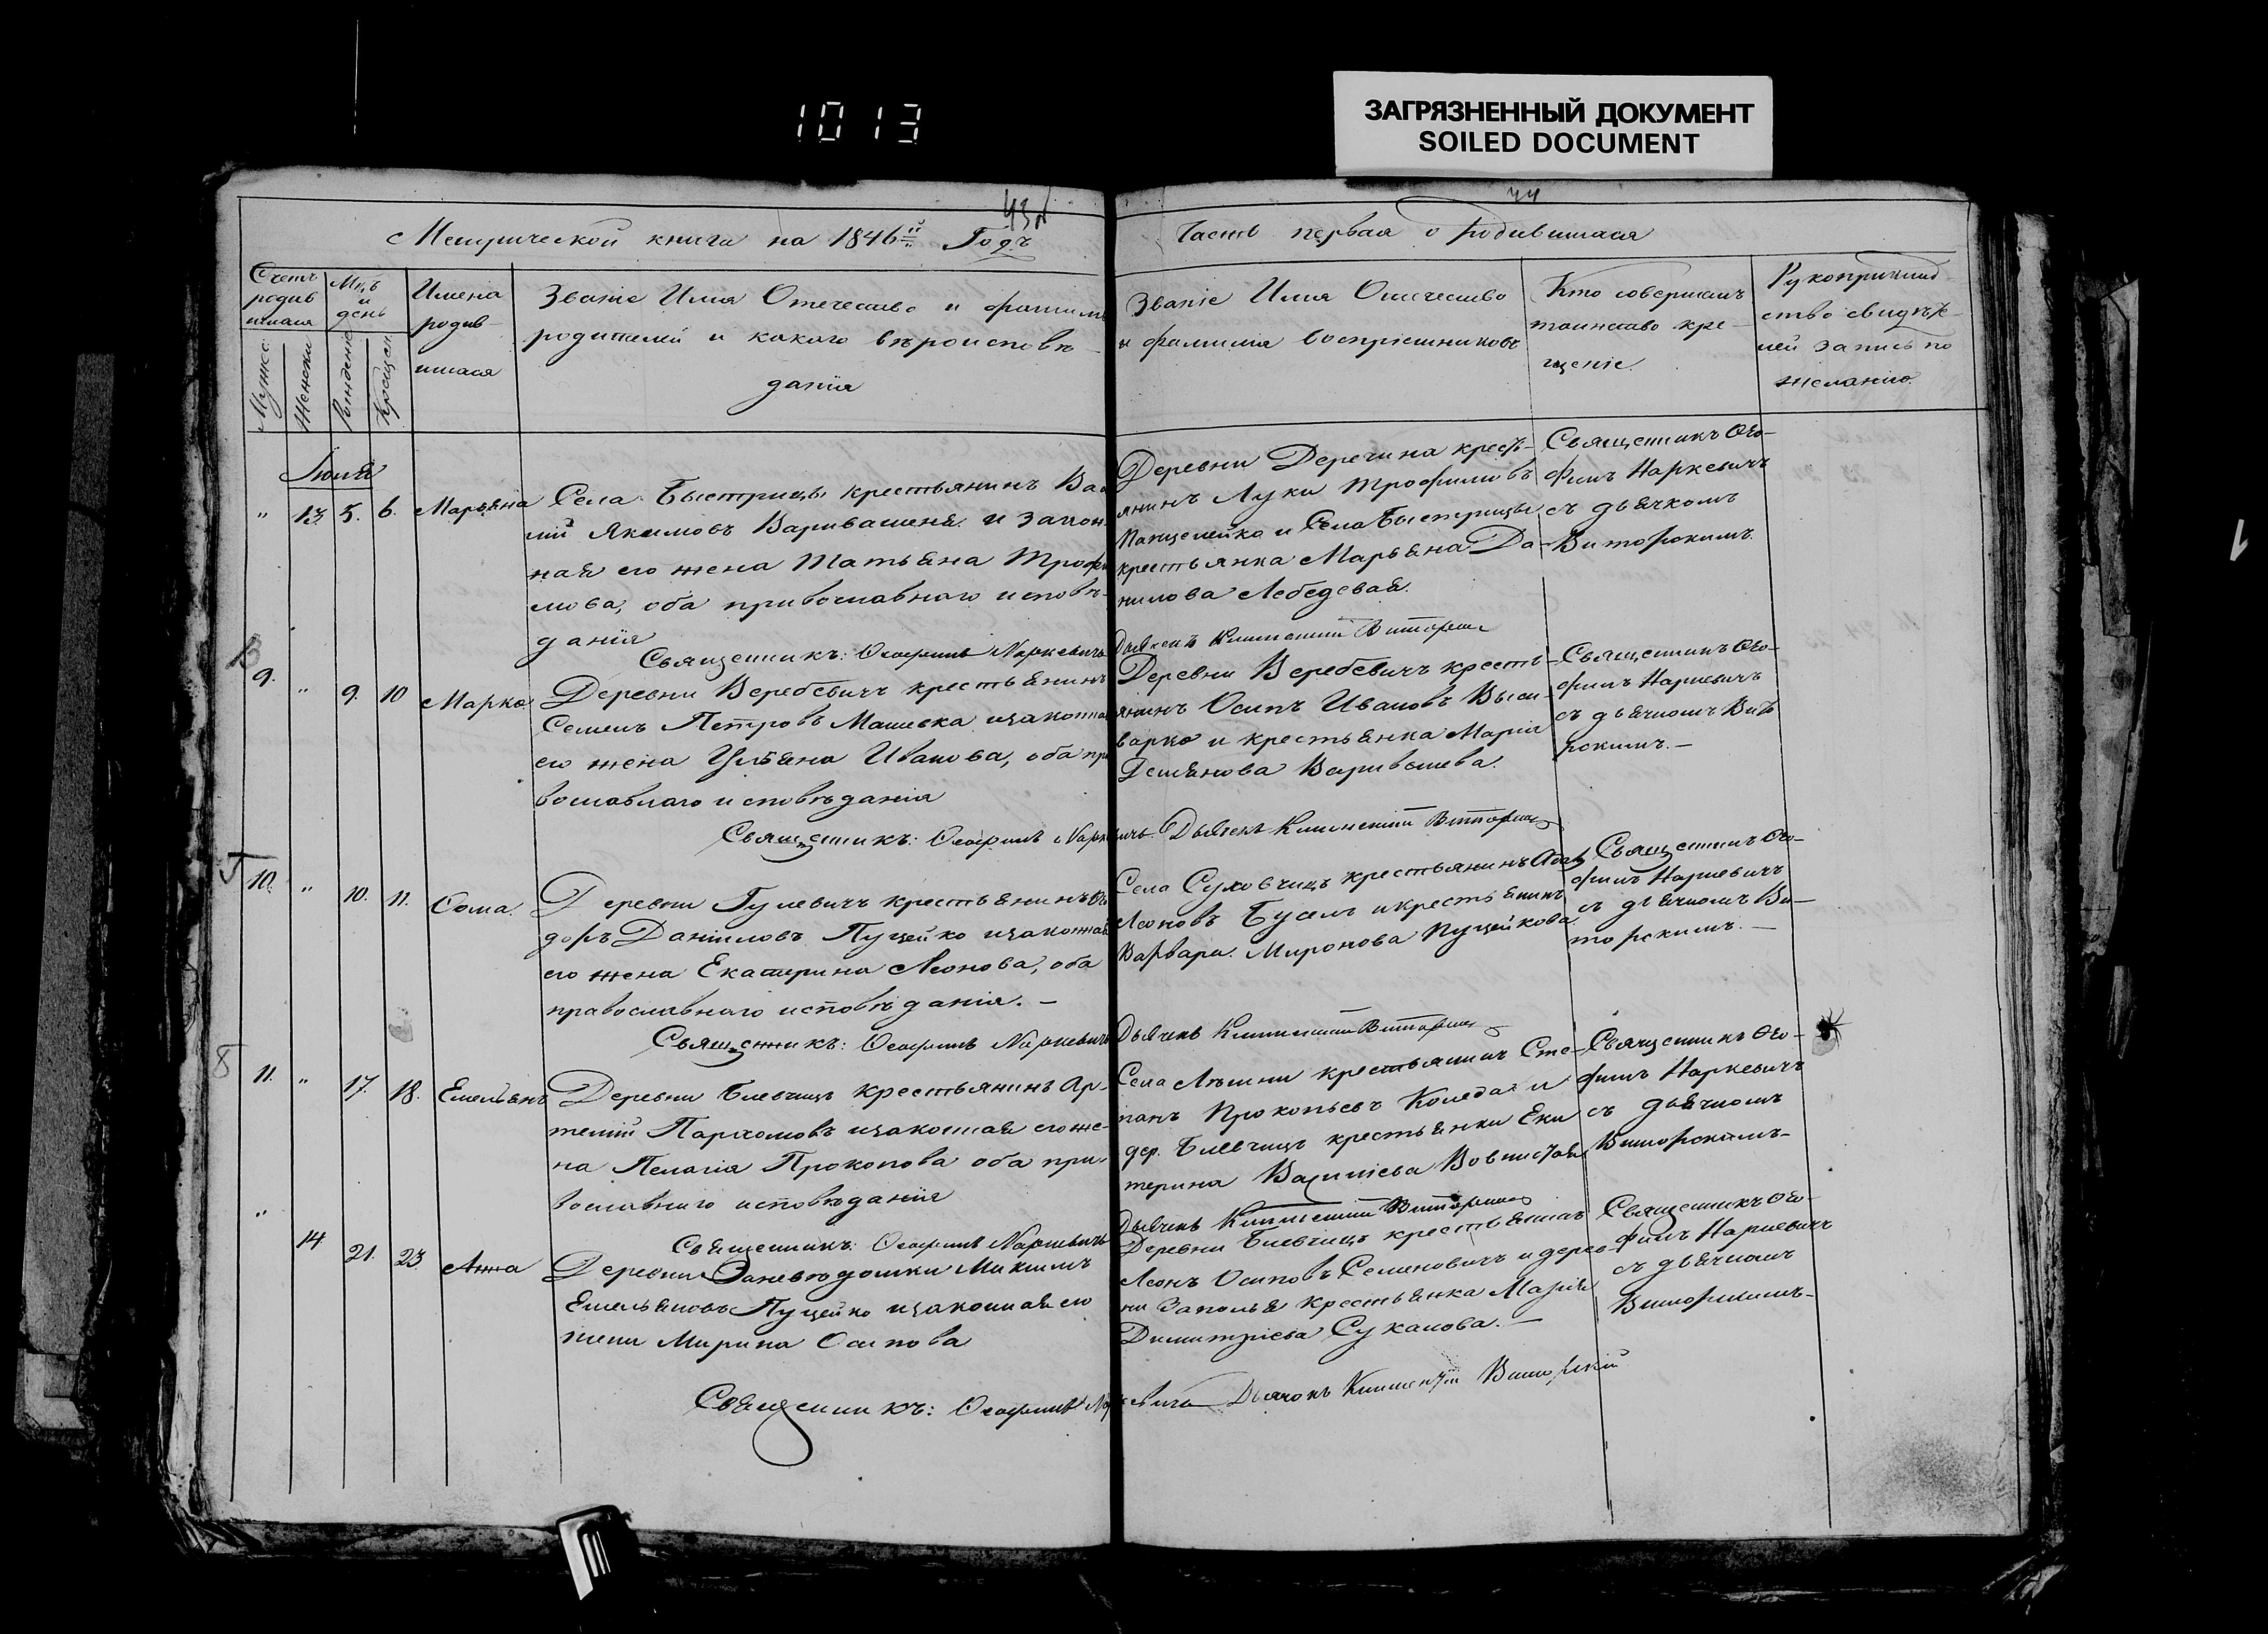 1013
ЗАГРЯЗНЕННЫЙ ДОКУМЕНТ
SOILED DOCUMENT
43
44
Метрической книги на 1846й Годъ
Часть первая о родившихся
Счетъ родив шихся
Мужес.
Женски
Мцъ и день
Рожденiе
Крещен.
Имена родив- шихся
Званiе Имя Отечество и фамилiя
родителей и какого вѣроисповѣ-
данiя
Званiе Имя Отечество
и фамилiя воспрiемниковъ
Кто совершалъ
таинство кре-
щенiе.
Рукоприклад
ство свидѣте-
лей запись по
желанiю.
Iюля
" 13. 5. 6. Марьяна
Села Быстрицы крестьянинъ Ва
лiй ЯкимовъВаривашеня и закон
ная его жена Татьяна Трофи
мова, оба православнаго исповѣ-
данiя
Священникъ: Ѳеофилъ Наркевичъ
Деревни Деречина кресть-
янинъ Луки Трофимовъ
Панцелейко и Села Быстрицы
крестьянка Марьяна Да-
нилова Лебедевая.
Дьячекъ
Священникъ Ѳео-
филъ Наркевичъ
съ дьячкомъ
Виторскимъ.
9. " 9. 10 Марко
Деревни Веребевичъ крестьянинъ
Семенъ Петровъ Машевка изаконная
его жена Ульяна Иванова, оба пра
вославнаго исповѣданiя
Священникъ: Ѳеофилъ Наркевичъ. Дьячекъ
Деревни Веребевичъ кресть-
янинъ Осипъ Ивановъ Выси-
варко и крестьянка Марiя
Демьянова Варивашева.
Священникъ Ѳео-
филъ Наркевичъ
съ дьячкомъ Вито
рскимъ. —
10. " 10. 11. Ѳома.
Деревни Гулевичъ крестьянинъ Ѳе
доръ Данiиловъ Пуцейко изаконная
его жена Екатерина Леонова, оба
православнаго исповѣданiя. —
Священникъ: Ѳеофилъ Наркевичъ
Села Суховчицъ крестьянинъ
Леоновъ Бусель и крестьянинъ
Варвара Миронова Пуцейкова
Дьячекъ
Священникъ Ѳео-
филъ Наркевичъ
съ дьячкомъ Ви-
торскимъ. —
11. " 17. 18. Емельянъ
Деревни Блевчицъ крестьянинъ Ар-
темiй Пархомовъ изаконная его же-
на Пелагiя Прокопова оба пра-
вославнаго исповѣданiя
Священникъ: Ѳеофилъ Наркевичъ
Села Лѣшни крестьянинъ Сте-
панъ Прокопьевъ Коледа и
дер. Блевчицъ крестьянки Ека
терина Василiева
Дьячекъ
Священникъ Ѳео-
филъ Наркевичъ
съ дьячкомъ
Виторскимъ-
" 14 21. 23. Анна
Деревни Максимъ
Емельяновъ Пуцейко изаконная его
жена Марина Осипова
Священникъ: Ѳеофилъ Наркевичъ Дьячокъ
Деревни Блевчицъ крестьянинъ
Леонъ Осиповъ Семеновичъ и дерев
ни Заполья крестьянка Марiя
Димитрiева Суканова. —
Священникъ Ѳео-
филъ Наркевичъ
съ дьячкомъ
Виторскимъ-